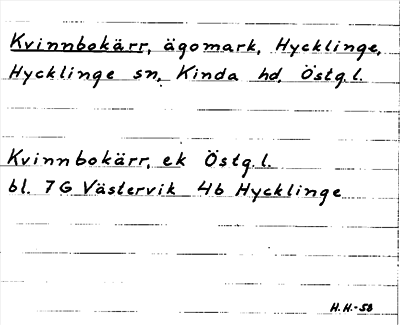 Kvinnbokärr, ägomark, Hycklinge,
Hycklinge sn, Kinda hd, Östg.l.
Kvinnbokärr, ek Östg.l.
bl. 7G Västervik 4b Hycklinge
H.H.-58